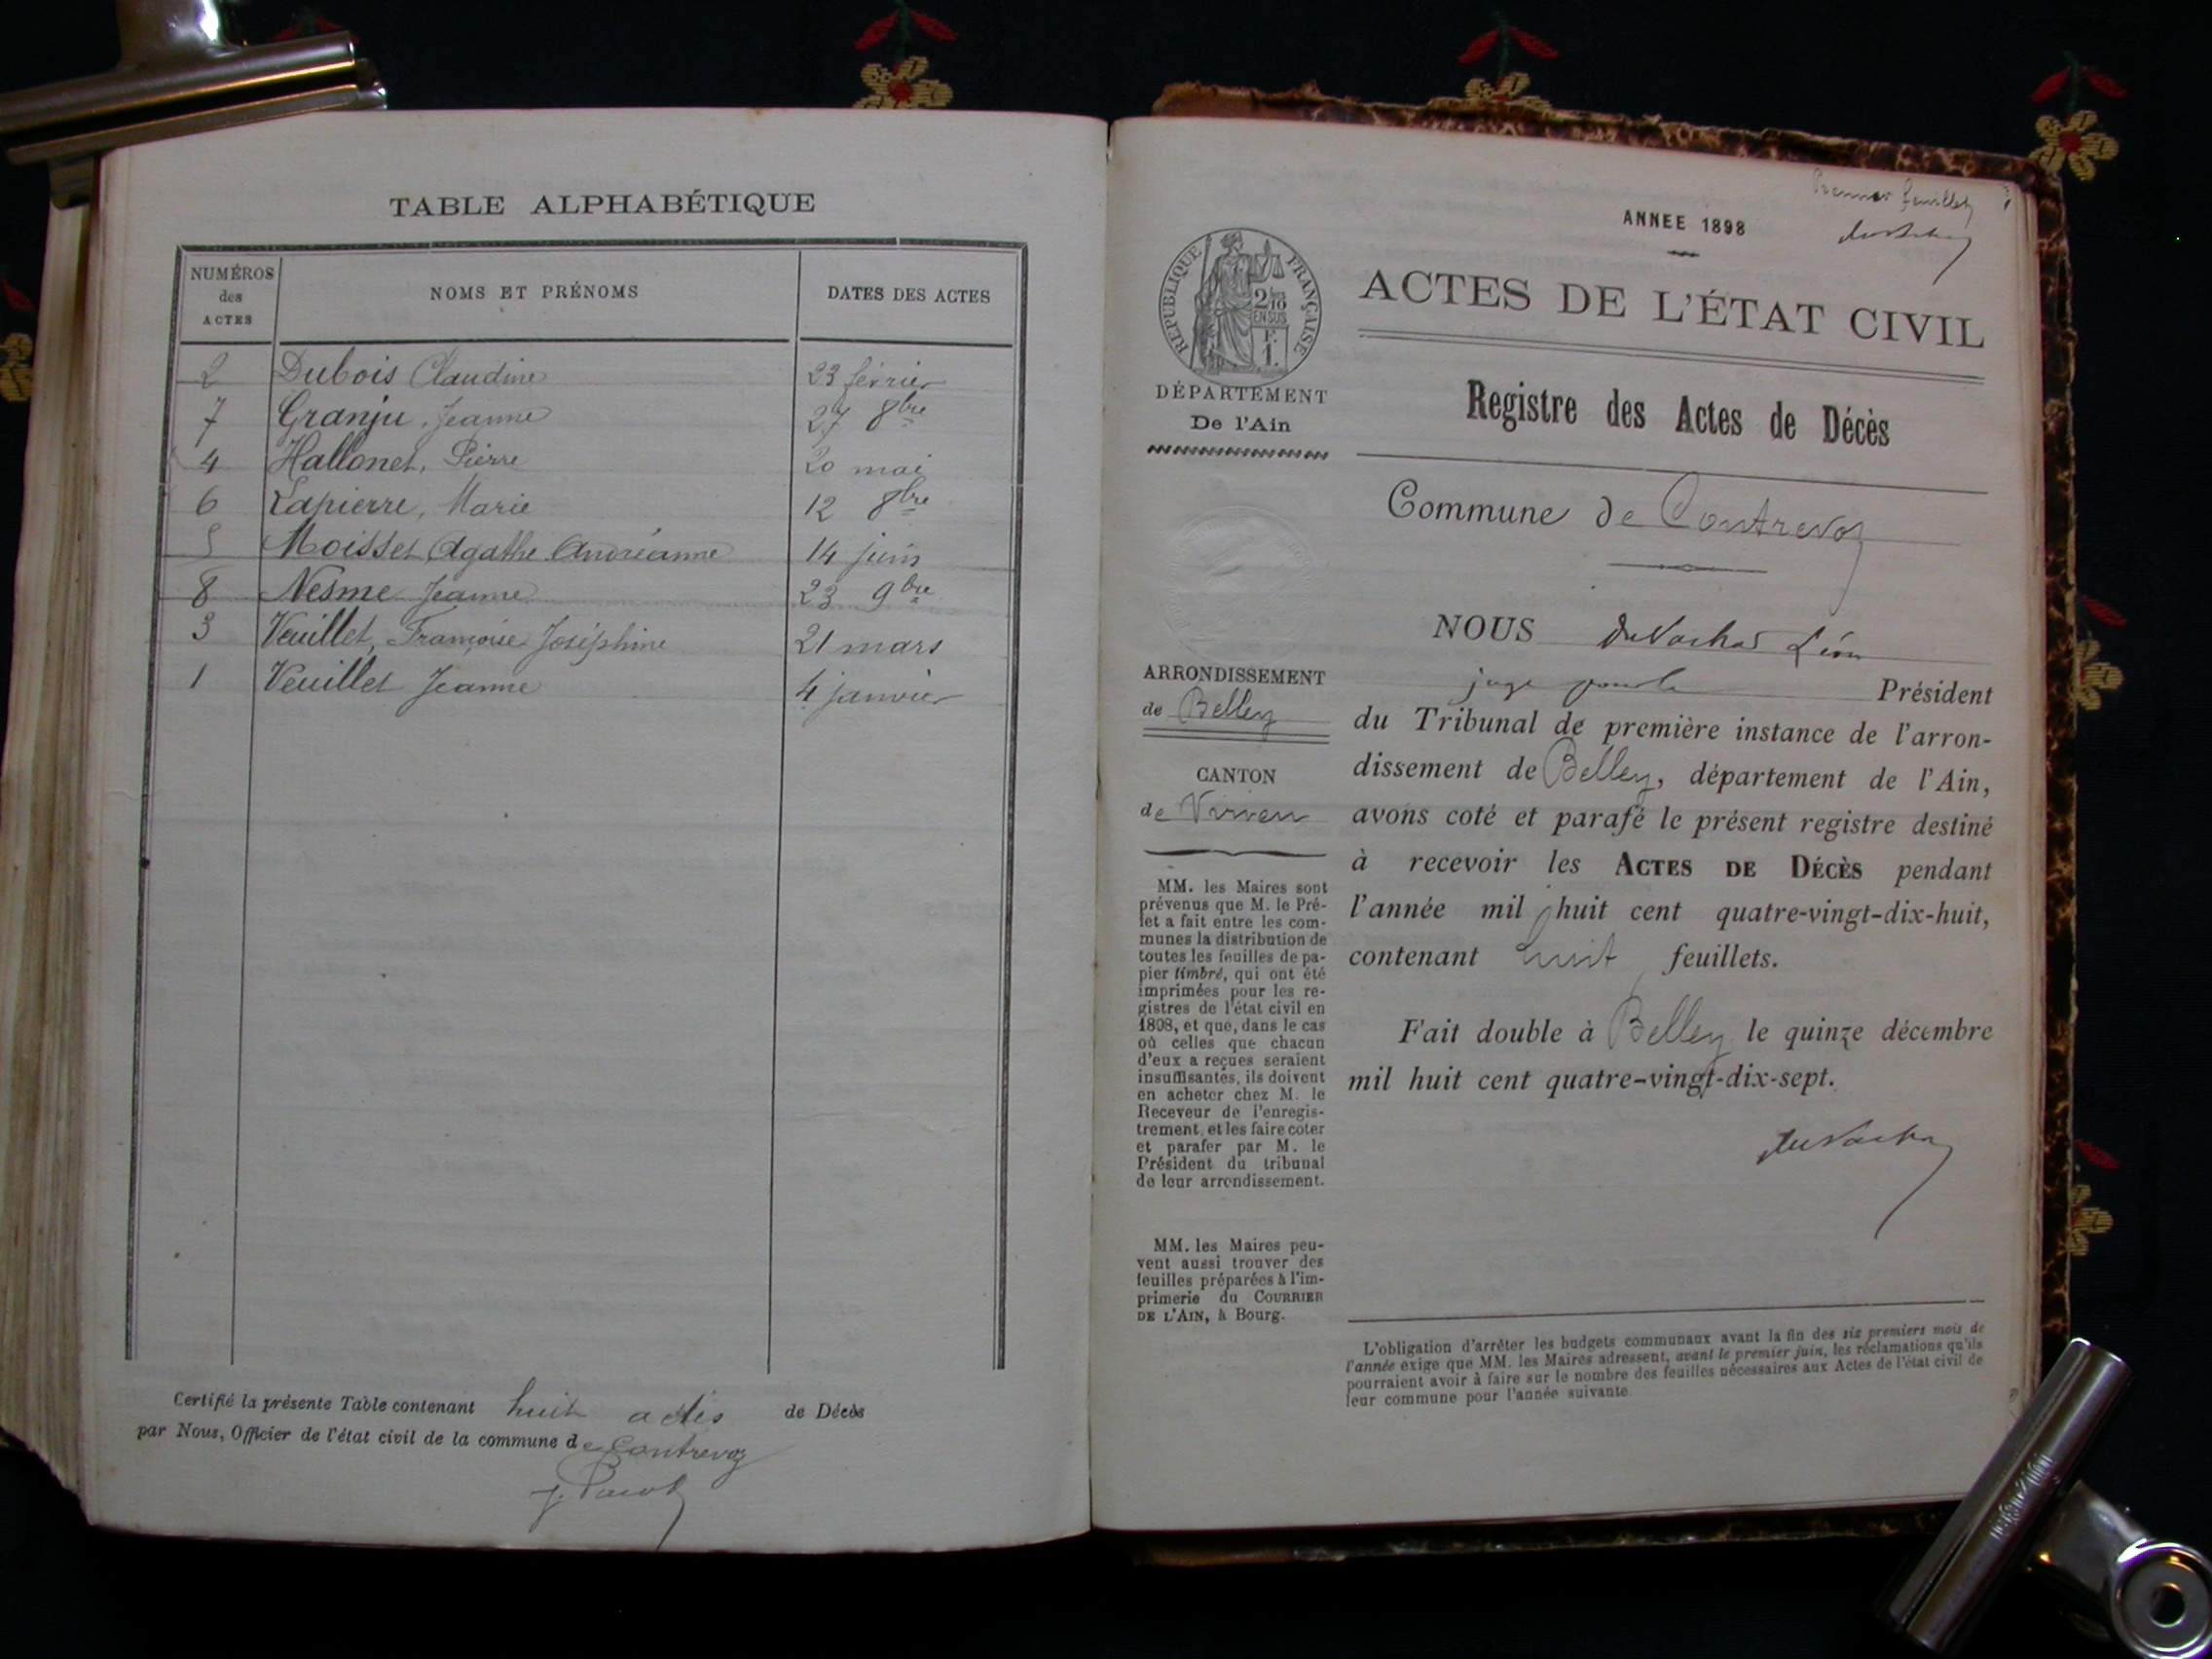 TABLE ALPHABÉTIQUE
NUMÉROS des ACTES
NOMS ET PRÉNOMS
DATES DES ACTES
2 Dubois Claudine 23 février
7 Granju, Jeanne 27 8bre
4 Hallonet, Pierre 20 mai
6 Lapierre, Marie 12 8bre
5 Moisset Agathe Andréanne 14 juin
8 Nesme Jeanne 23 9bre
3 Veuillet, Françoise Joséphine 21 mars
1 Veuillet Jeanne 4 janvier
Certifié la présente Table contenant huit actes de Décès
par Nous, Officier de l'état civil de la commune de Contrevoz
Premier feuillet
ANNEE 1898
RÉPUBLIQUE FRANÇAISE
2/10
EN SUS
F.
1.
ACTES DE L'ÉTAT CIVIL
DÉPARTEMENT
De l'Ain
Registre des Actes de Décès
Commune de Contrevoz
ARRONDISSEMENT
de Belley
CANTON
de Virieu
MM. les Maires sont
prévenus que M. le Pré-
fet a fait entre les com-
munes la distribution de
toutes les feuilles de pa-
pier timbré, qui ont été
imprimées pour les re-
gistres de l'état civil en
1898, et que, dans le cas
où celles que chacun
d'eux a reçues seraient
insuffisantes, ils doivent
en acheter chez M. le
Receveur de l'enregis-
trement, et les faire coter
et parafer par M. le
Président du tribunal
de leur arrondissement.
MM. les Maires peu-
vent aussi trouver des
feuilles préparées à l'im-
primerie du COURRIER
DE L'AIN, à Bourg.
NOUS Léon
juge pour le Président
du Tribunal de première instance de l'arron-
dissement de Belley, département de l'Ain,
avons coté et parafé le présent registre destiné
à recevoir les ACTES DE DÉCÈS pendant
l'année mil huit cent quatre-vingt-dix-huit,
contenant huit feuillets.
Fait double à Belley le quinze décembre
mil huit cent quatre-vingt-dix-sept.
L'obligation d'arrêter les budgets communaux avant la fin des six premiers mois de
l'année exige que MM. les Maires adressent, avant le premier juin, les réclamations qu'ils
pourraient avoir à faire sur le nombre des feuilles nécessaires aux Actes de l'état civil de
leur commune pour l'année suivante